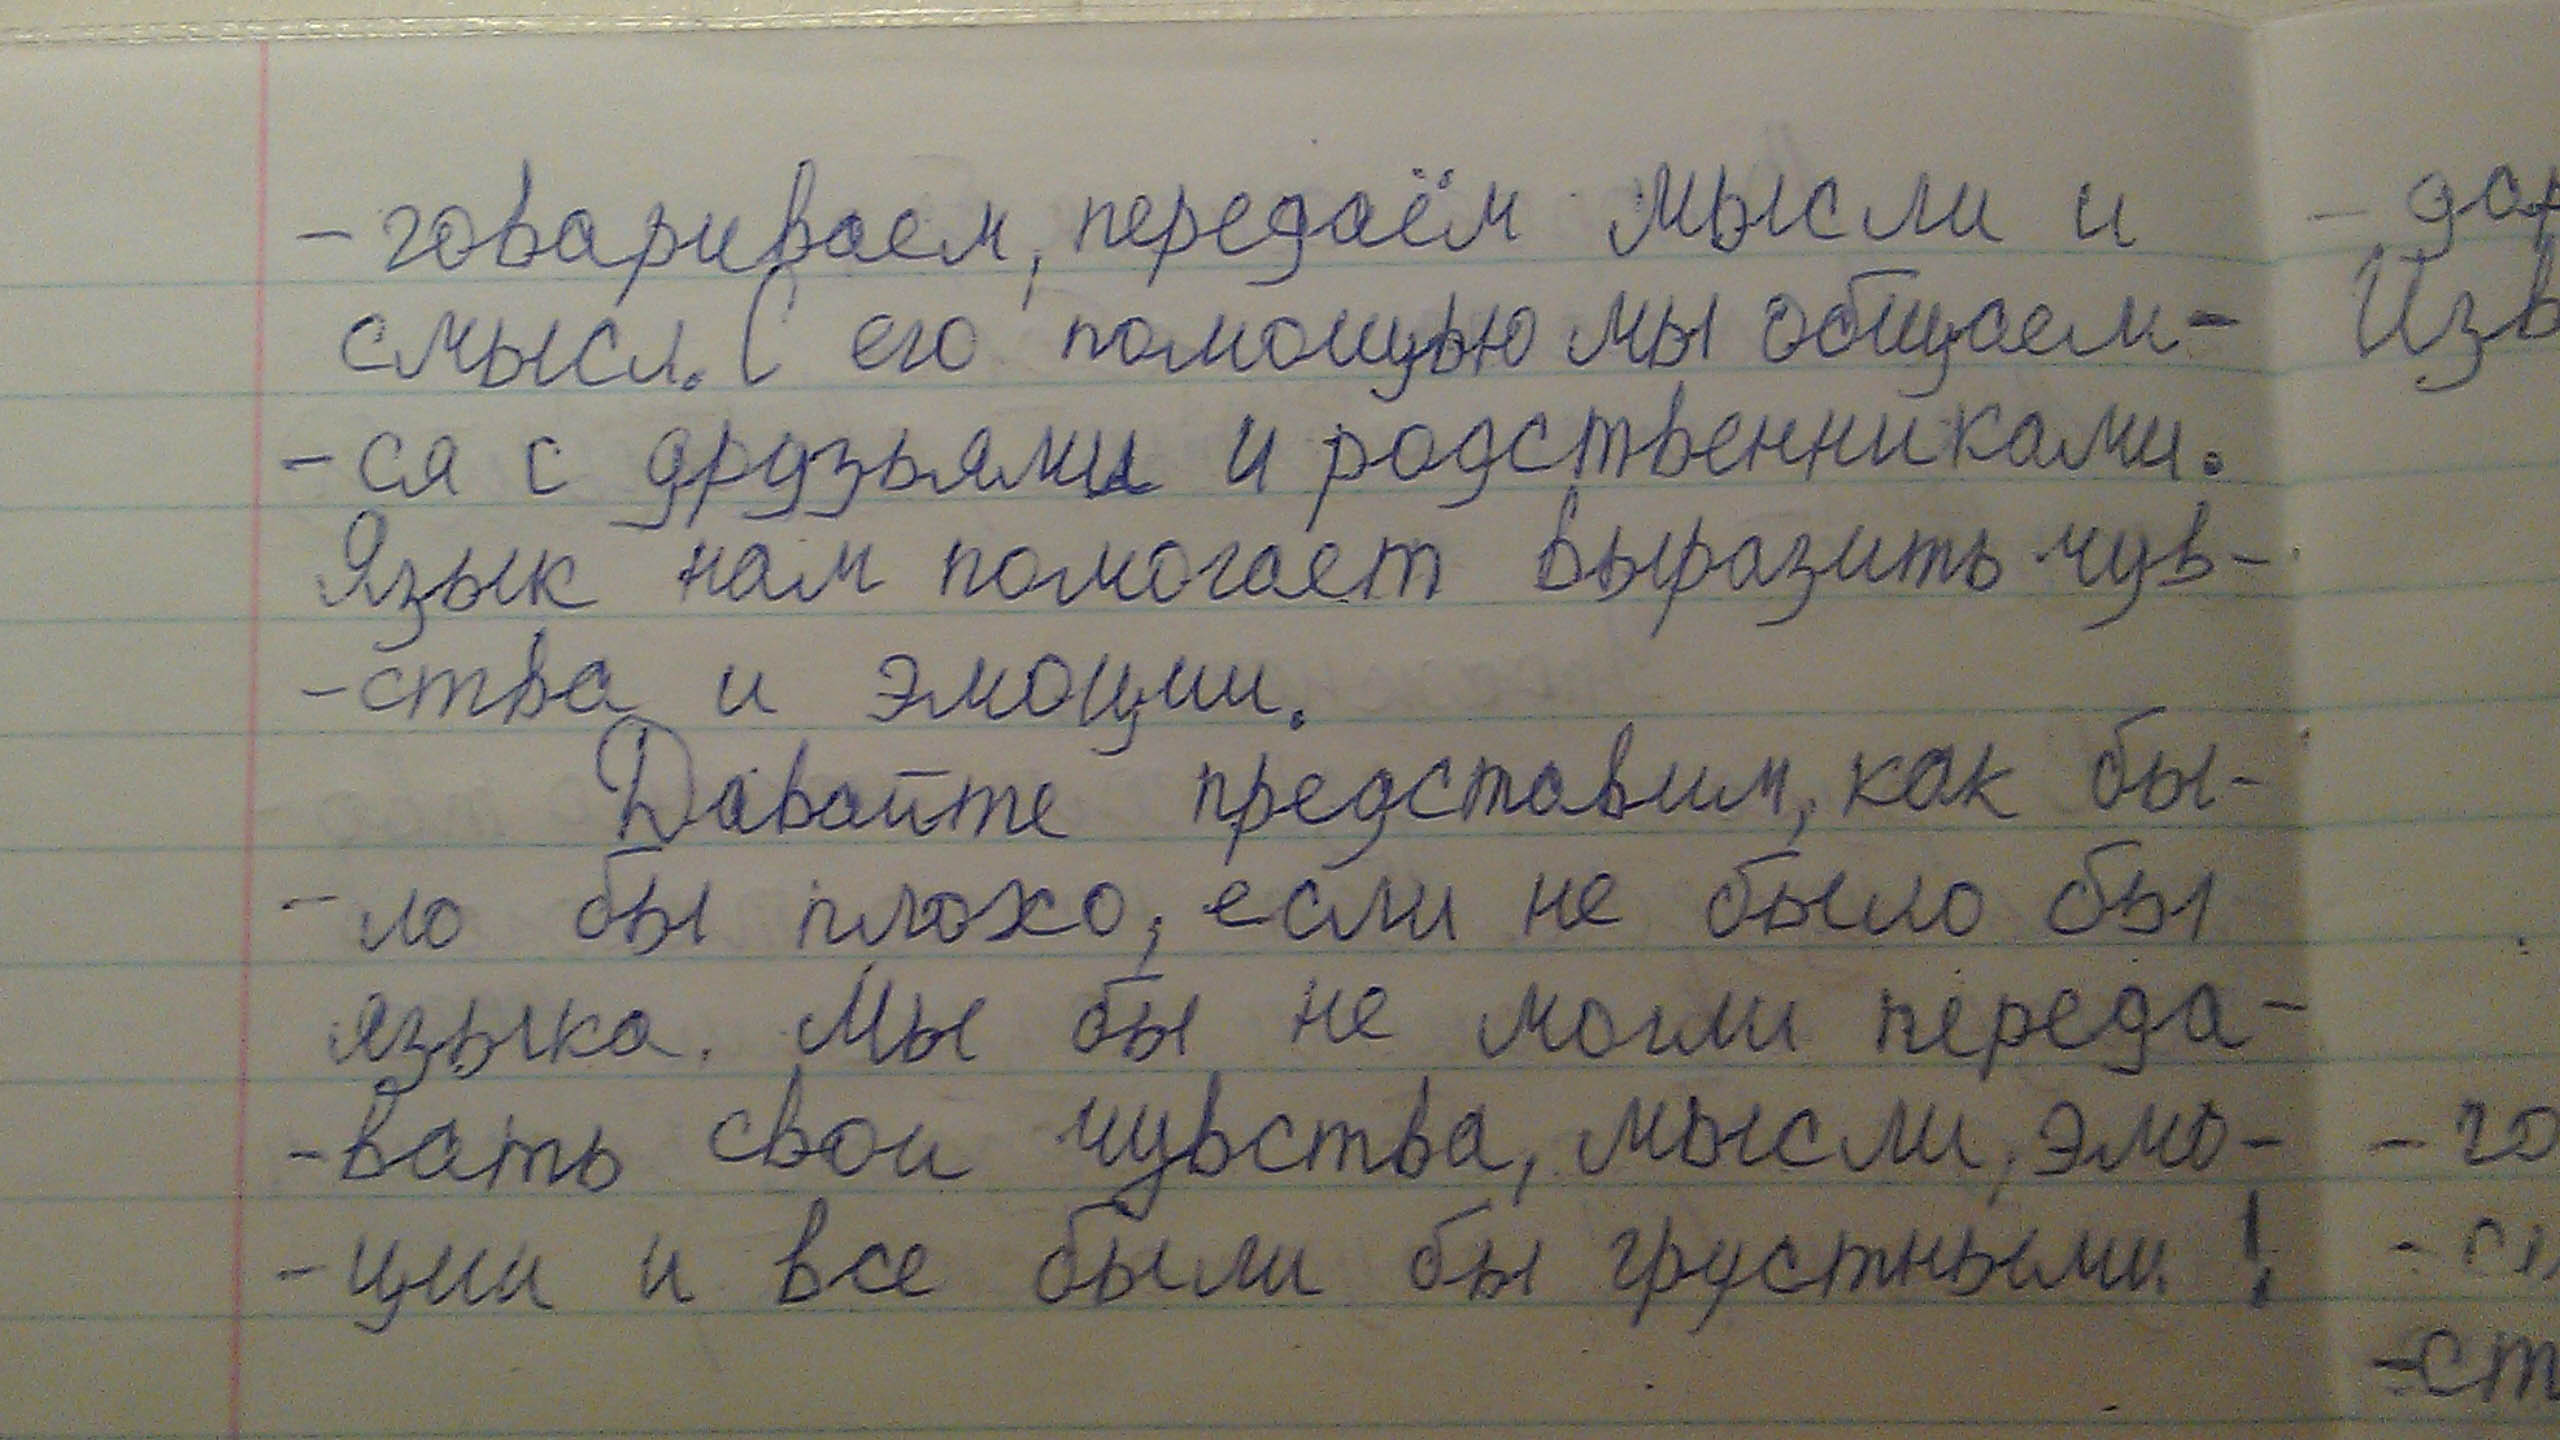 -говариваем, передаём мысли и
смысл. С его помощью мы общаем-
-ся с друзьями и родственниками.
Язык нам помогает выразить чув-
-ства и эмоции.
Давайте представим, как бы-
-ло бы плохо, если не было бы
языка. Мы бы не могли переда-
-вать свои чувства, мысли, эмо-
-ции и все были бы грустными!